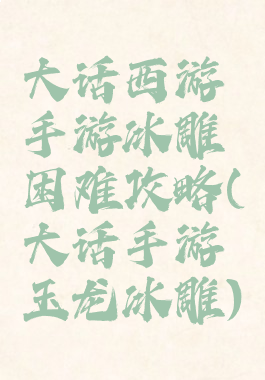 大话西游
手游冰雕
困难攻略(
大话手游
玉龙冰雕)